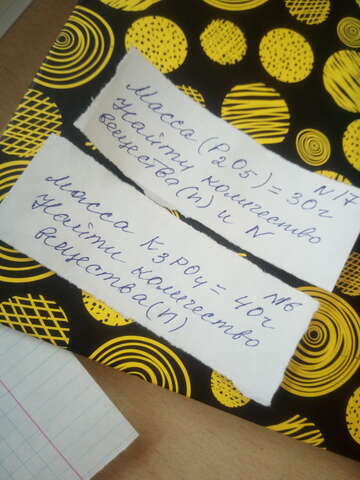 N17
Масса (P2O5) = 30г
Найти количество
вещества (n) и N
N6
Масса K3PO4 = 40г
Найти количество
вещества (n)